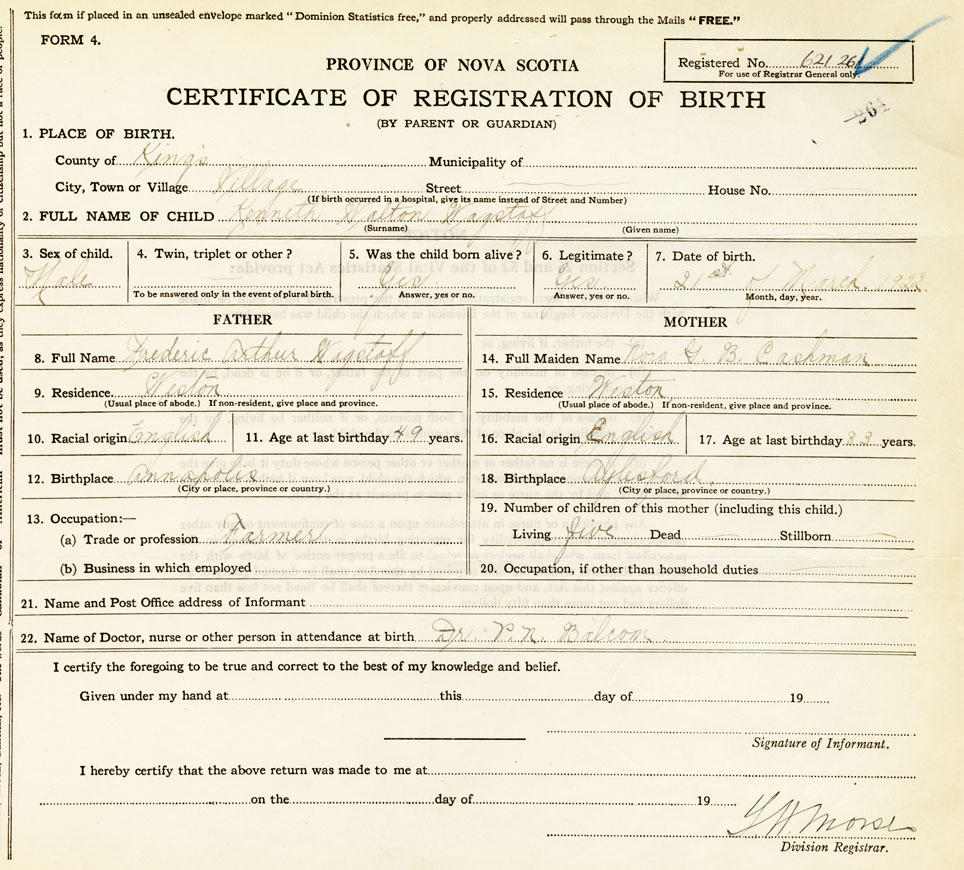 This form if placed in an unsealed envelope marked "Dominion Statistics free," and properly addressed will pass through the Mails "FREE."
FORM 4.
Registered No. 621 261
For use of Registrar General only.
PROVINCE OF NOVA SCOTIA
CERTIFICATE OF REGISTRATION OF BIRTH
264
(BY PARENT OR GUARDIAN)
1. PLACE OF BIRTH.
County of Kings Municipality of
City, Town or Village Village Street House No.
(If birth occurred in a hospital, give its name instead of Street and Number)
2. FULL NAME OF CHILD Kenneth Walton Wagstaff
(Surname) (Given name)
3. Sex of child. 4. Twin, triplet or other? 5. Was the child born alive? 6. Legitimate? 7. Date of birth.
Male Yes Yes 21st of March 1922
To be answered only in the event of plural birth. Answer, yes or no. Answer, yes or no. Month, day, year.
FATHER MOTHER
8. Full Name Frederic Arthur Wagstaff 14. Full Maiden Name G. B. Cashman
9. Residence Weston 15. Residence Weston
(Usual place of abode.) If non-resident, give place and province. (Usual place of abode.) If non-resident, give place and province.
10. Racial origin English 11. Age at last birthday 49 years. 16. Racial origin English 17. Age at last birthday 33 years.
12. Birthplace Annapolis 18. Birthplace Aylesford
(City or place, province or country.) (City or place, province or country.)
13. Occupation:— 19. Number of children of this mother (including this child.)
(a) Trade or profession Farmer Living five Dead Stillborn
(b) Business in which employed 20. Occupation, if other than household duties
21. Name and Post Office address of Informant
22. Name of Doctor, nurse or other person in attendance at birth Dr. P. N. Balcom
I certify the foregoing to be true and correct to the best of my knowledge and belief.
Given under my hand at this day of 19
Signature of Informant.
I hereby certify that the above return was made to me at
on the day of 19
Morse
Division Registrar.